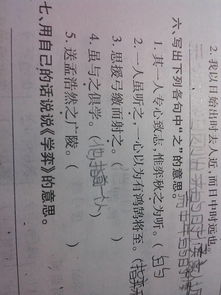 2. 我以日始出时去人近，而日中时远也。
六、写出下列各句中“之”的意思。
1. 其一人专心致志，惟弈秋之为听。(
2. 一人虽听之，一心以为有鸿鹄将至。(
3. 思援弓缴而射之。( )
4. 虽与之俱学。( 他指 )
5. 送孟浩然之广陵。( )
七、用自己的话说说《学弈》的意思。